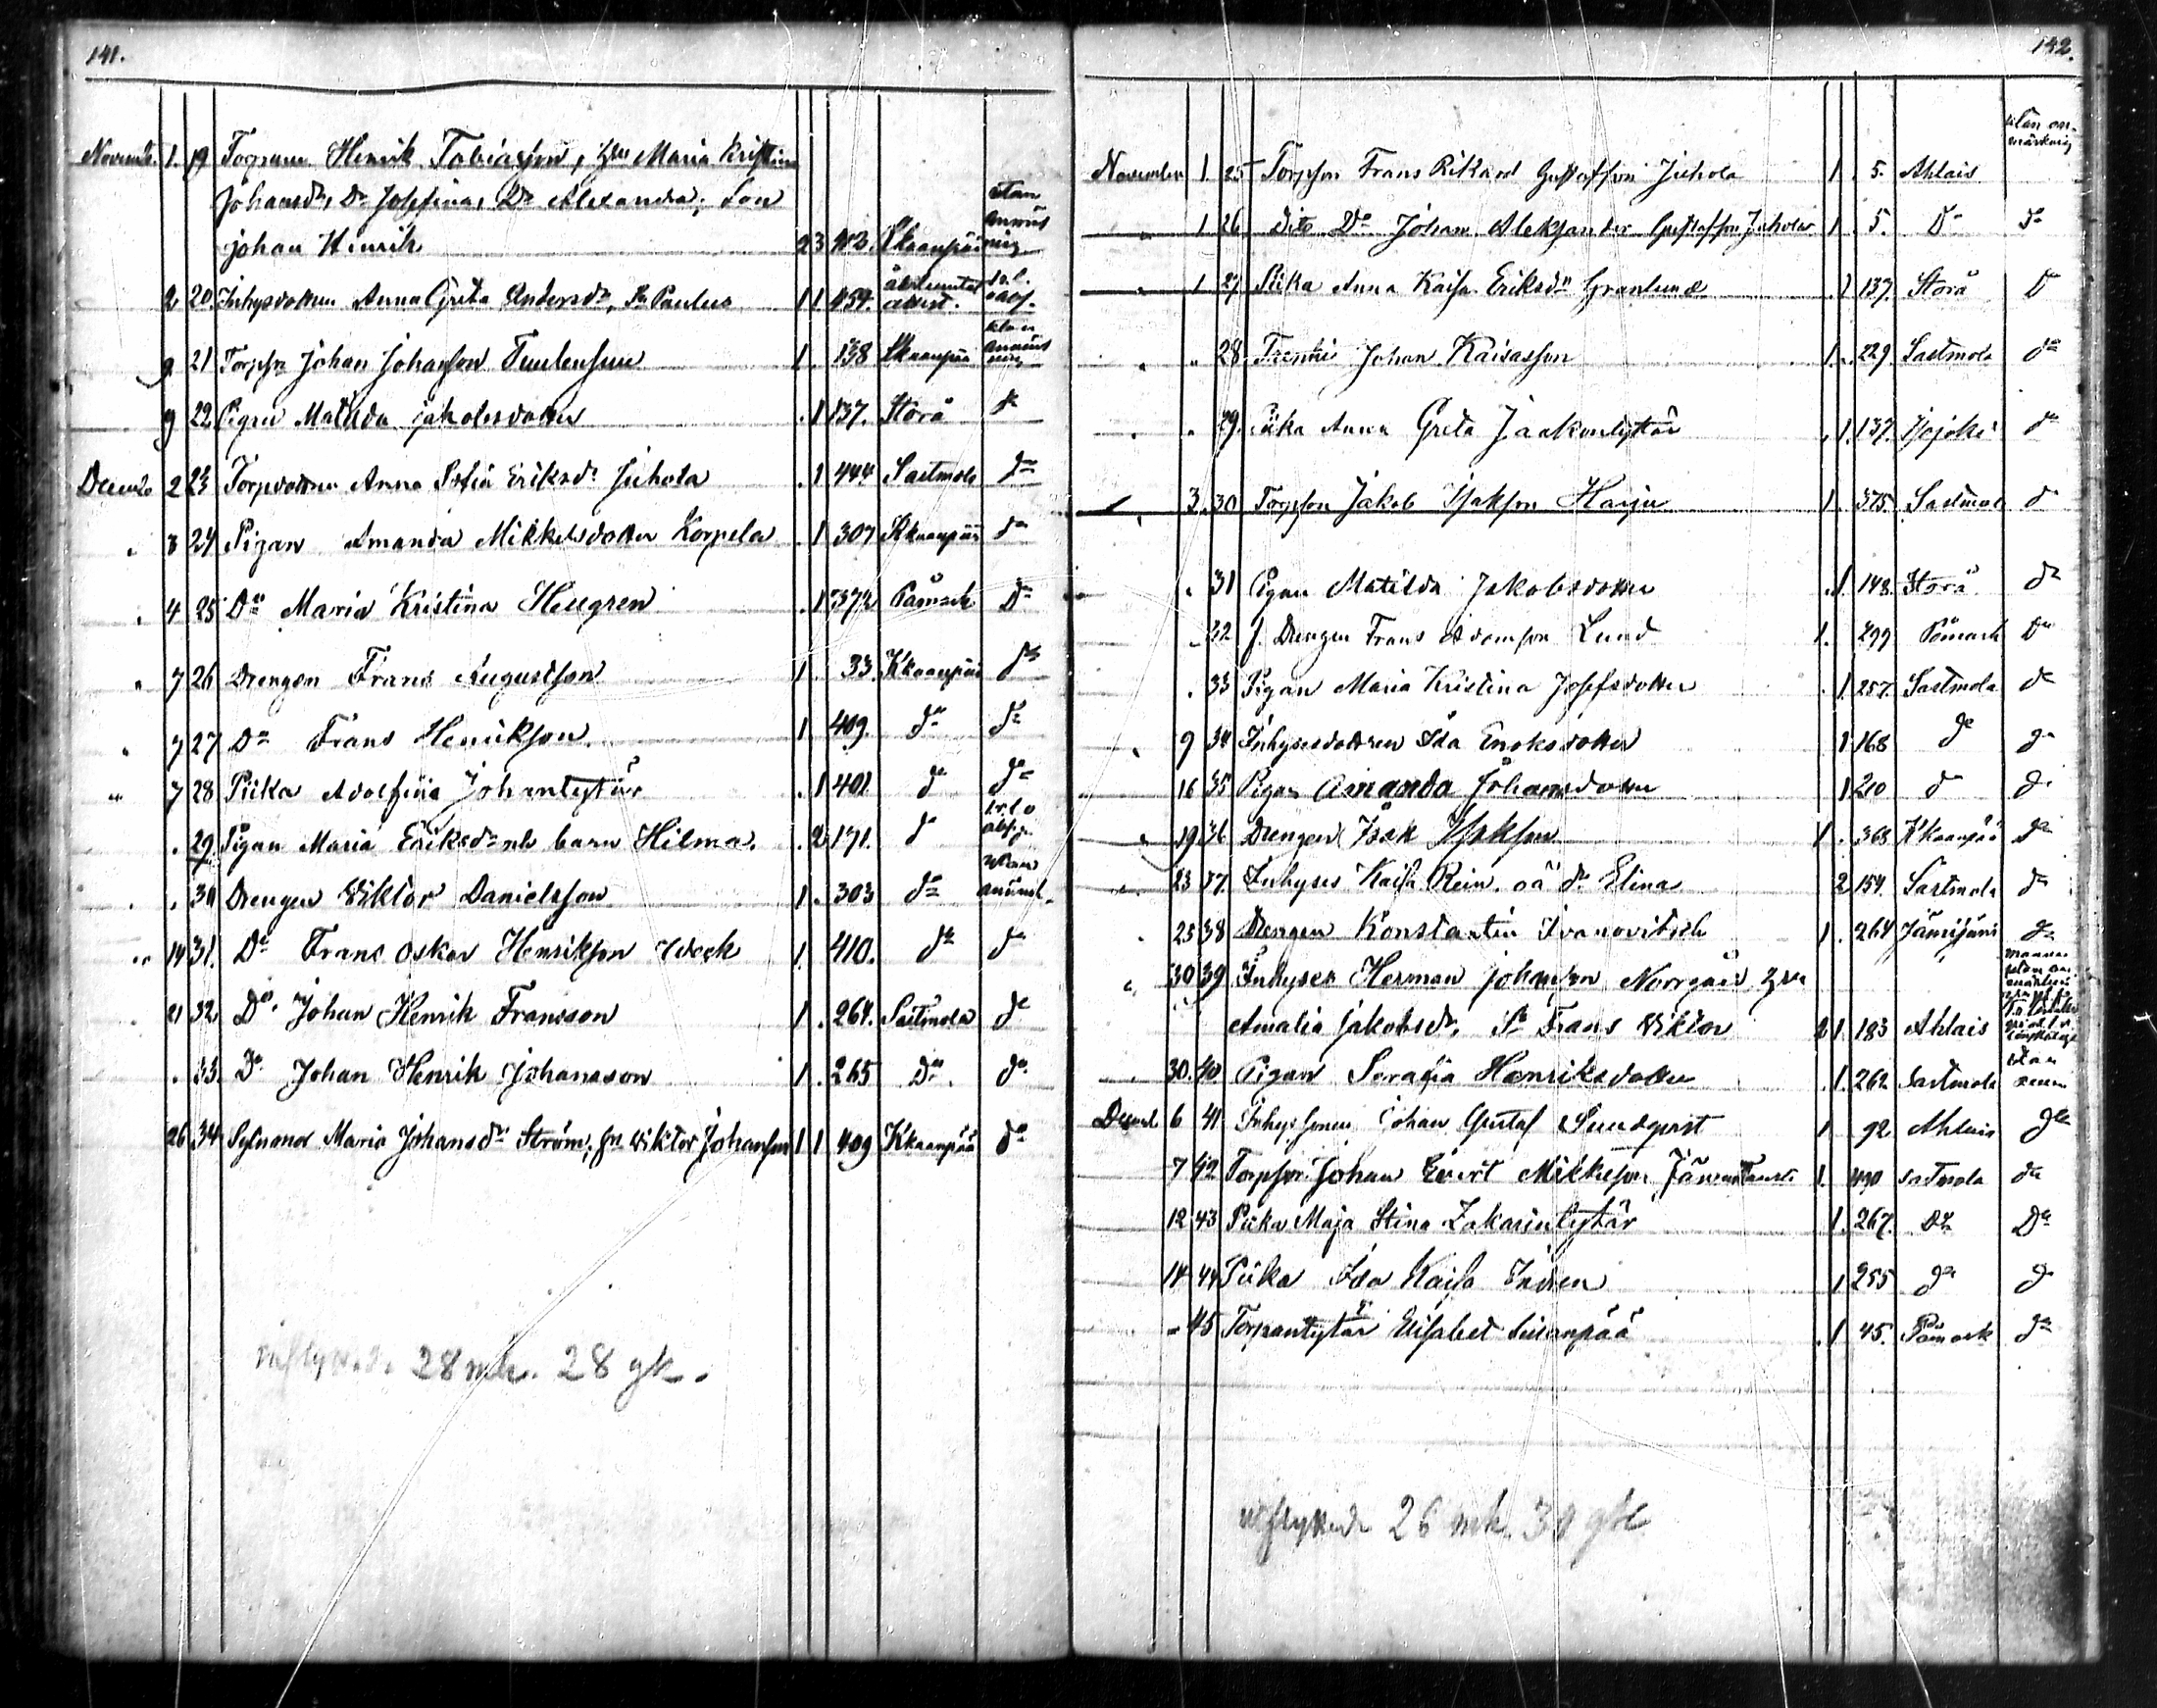 141.
November 1. 19 Torparen Henrik Tobiasson, hru Maria Kristina
Johansdr, Dr Josefina, Dr Alexandra, Son utan
Johan Henrik 2 3 412. Kkaanpää anmärkning
2 20. Inhysdottern Anna Greta Andersdr, Sn Paulus 1 1 454.
9 21 Torpsn Johan Johansson 1. 138 Kkaanpää utan anmärkning
9 22 Pigan Matilda Jakobsdotter . 1 137. Storå do
Decemb. 2 23 Torpdottern Anna Sofia Eriksdr Juhola . 1 444 Sastmola do
" 3 24 Pigan Amanda Mikkelsdotter Korpela . 1 307 Kkaanpää do
" 4 25 Do Maria Kristina Hellgren . 1 372 Påmark Do
" 7 26 Drengen Frans Augustsson 1. 33 Kkaanpää do
" 7 27 Do Frans Henriksson 1 409. do do
" 7 28 Piika Adolfina Johantytär . 1 401 do do
" 29 Pigan Maria Eriksdr och barn Hilma. . 2 171. do
" 30 Drengen Viktor Danielsson 1. 303 do utan anmärk.
" 14 31. Do Frans Oskar Henriksson Week 1. 410. do do
21 32. Do Johan Henrik Fransson 1. 264. Sastmola do
" 33. Do Johan Henrik Johansson 1. 265 Do do
26 34 Maria Johansdr Ström, sn Viktor Johansson 1 1 409 Kkaanpää do
28 mk. 28 qk.
142.
utan an-
märkning
November 1. 25 Torpson Frans Rikard Gustafsson Juhola 1. 5. Ahlais
" 1 26 dito Do Johan Aleksander Gustafsson Juhola 1. 5. Do do
" 1 27 Piika Anna Kaisa Eriksdr Granlund . 1 137. Storå D
" " 28. Trenki Johan Kaisasson 1. 229. Sastmola do
" " 29. Piika Anna Greta Jaakontytär . 1. 137. Isojoki do
" 3. 30 Torpson Jakob Isaksson Harju 1. 375. Sastmola do
" 31 Pigan Matilda Jakobsdotter . 1 148. Storå do
" 32 f. Drengen Frans Adamsson Lund 1. 299 Påmark Do
" 33 Pigan Maria Kristina Josefsdotter . 1 257. Sastmola do
" 9 34 Inhysesdottren Ida Enoksdotter 1 168 do do
16 35 Pigan Amanda Johansdotter 1 210 do do
" 19 36 Drengen Isak Isaksson 1. 368 Kkaanpää do
" 23 37. Inhyses Kaisa Rein. oä dr Elina 2 154. Sastmola do
" 25 38 Drengen Konstantin Ivanovitsch 1. 264 Jämijärvi do
" 30 39 Inhyses Herman Johansson Norrgård, hru
Amalia Jakobsdr, Sn Frans Viktor 2 1. 183 Ahlais
" 30. 40 Pigan Serafia Henriksdotter . 1. 262 Sastmola utan anm
Decemb 6 41 Inhys sonen Johan Gustaf Sundqvist 1 92 Ahlais do
7 42 Torpson Johan Evert Mikkelsson 1. 490 Sastmola do
12 43 Piika Maja Stina Zakariantytär . 1. 267. Do Do
14 44 Piika Ida Kaisa Indren . 1 255 do do
" 45 Torpantytär Elisabet Sillanpää . 1 45. Påmark do
utflyttade 26 mk. 30 qk